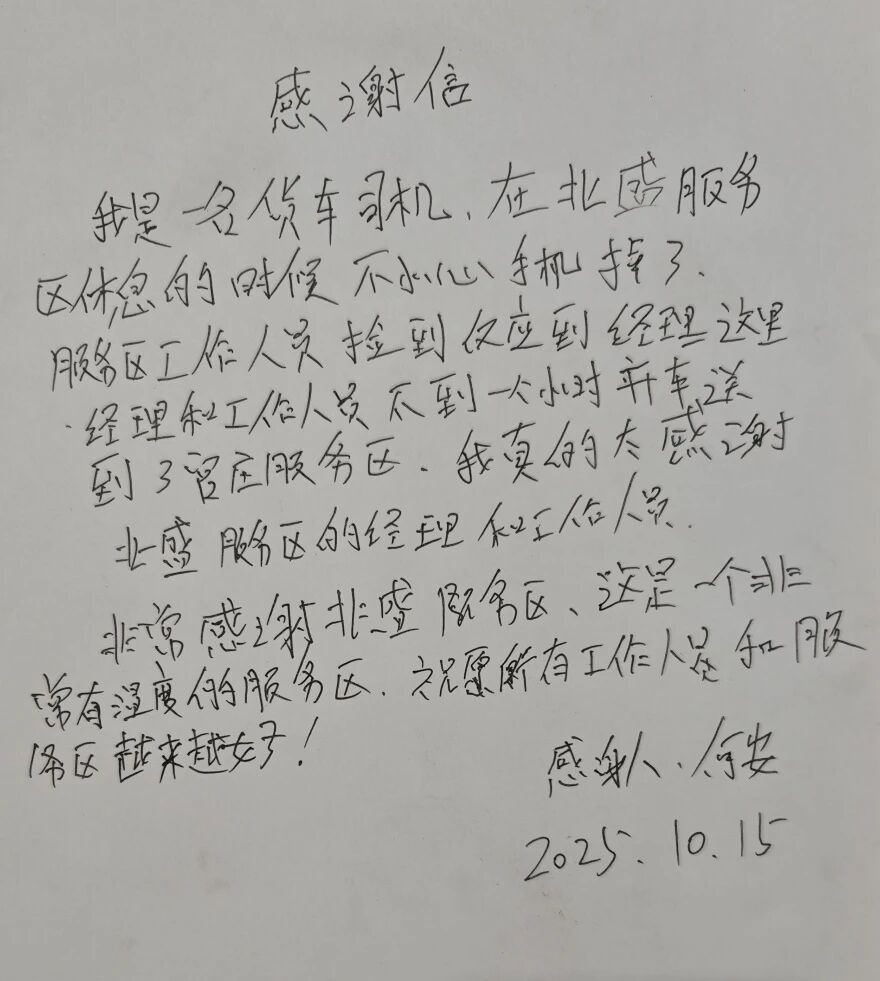 感谢信
我是一名货车司机、在北盛服务
区休息的时候不小心手机掉了.
服务区工作人员捡到反应到经理这里
经理和工作人员不到一个小时开车送
到了官庄服务区.我真的太感谢
北盛服务区的经理和工作人员.
非常感谢北盛服务区、这是一个非
常有温度的服务区.祝愿所有工作人员和服
务区越来越好!
感谢人.何安
2025.10.15